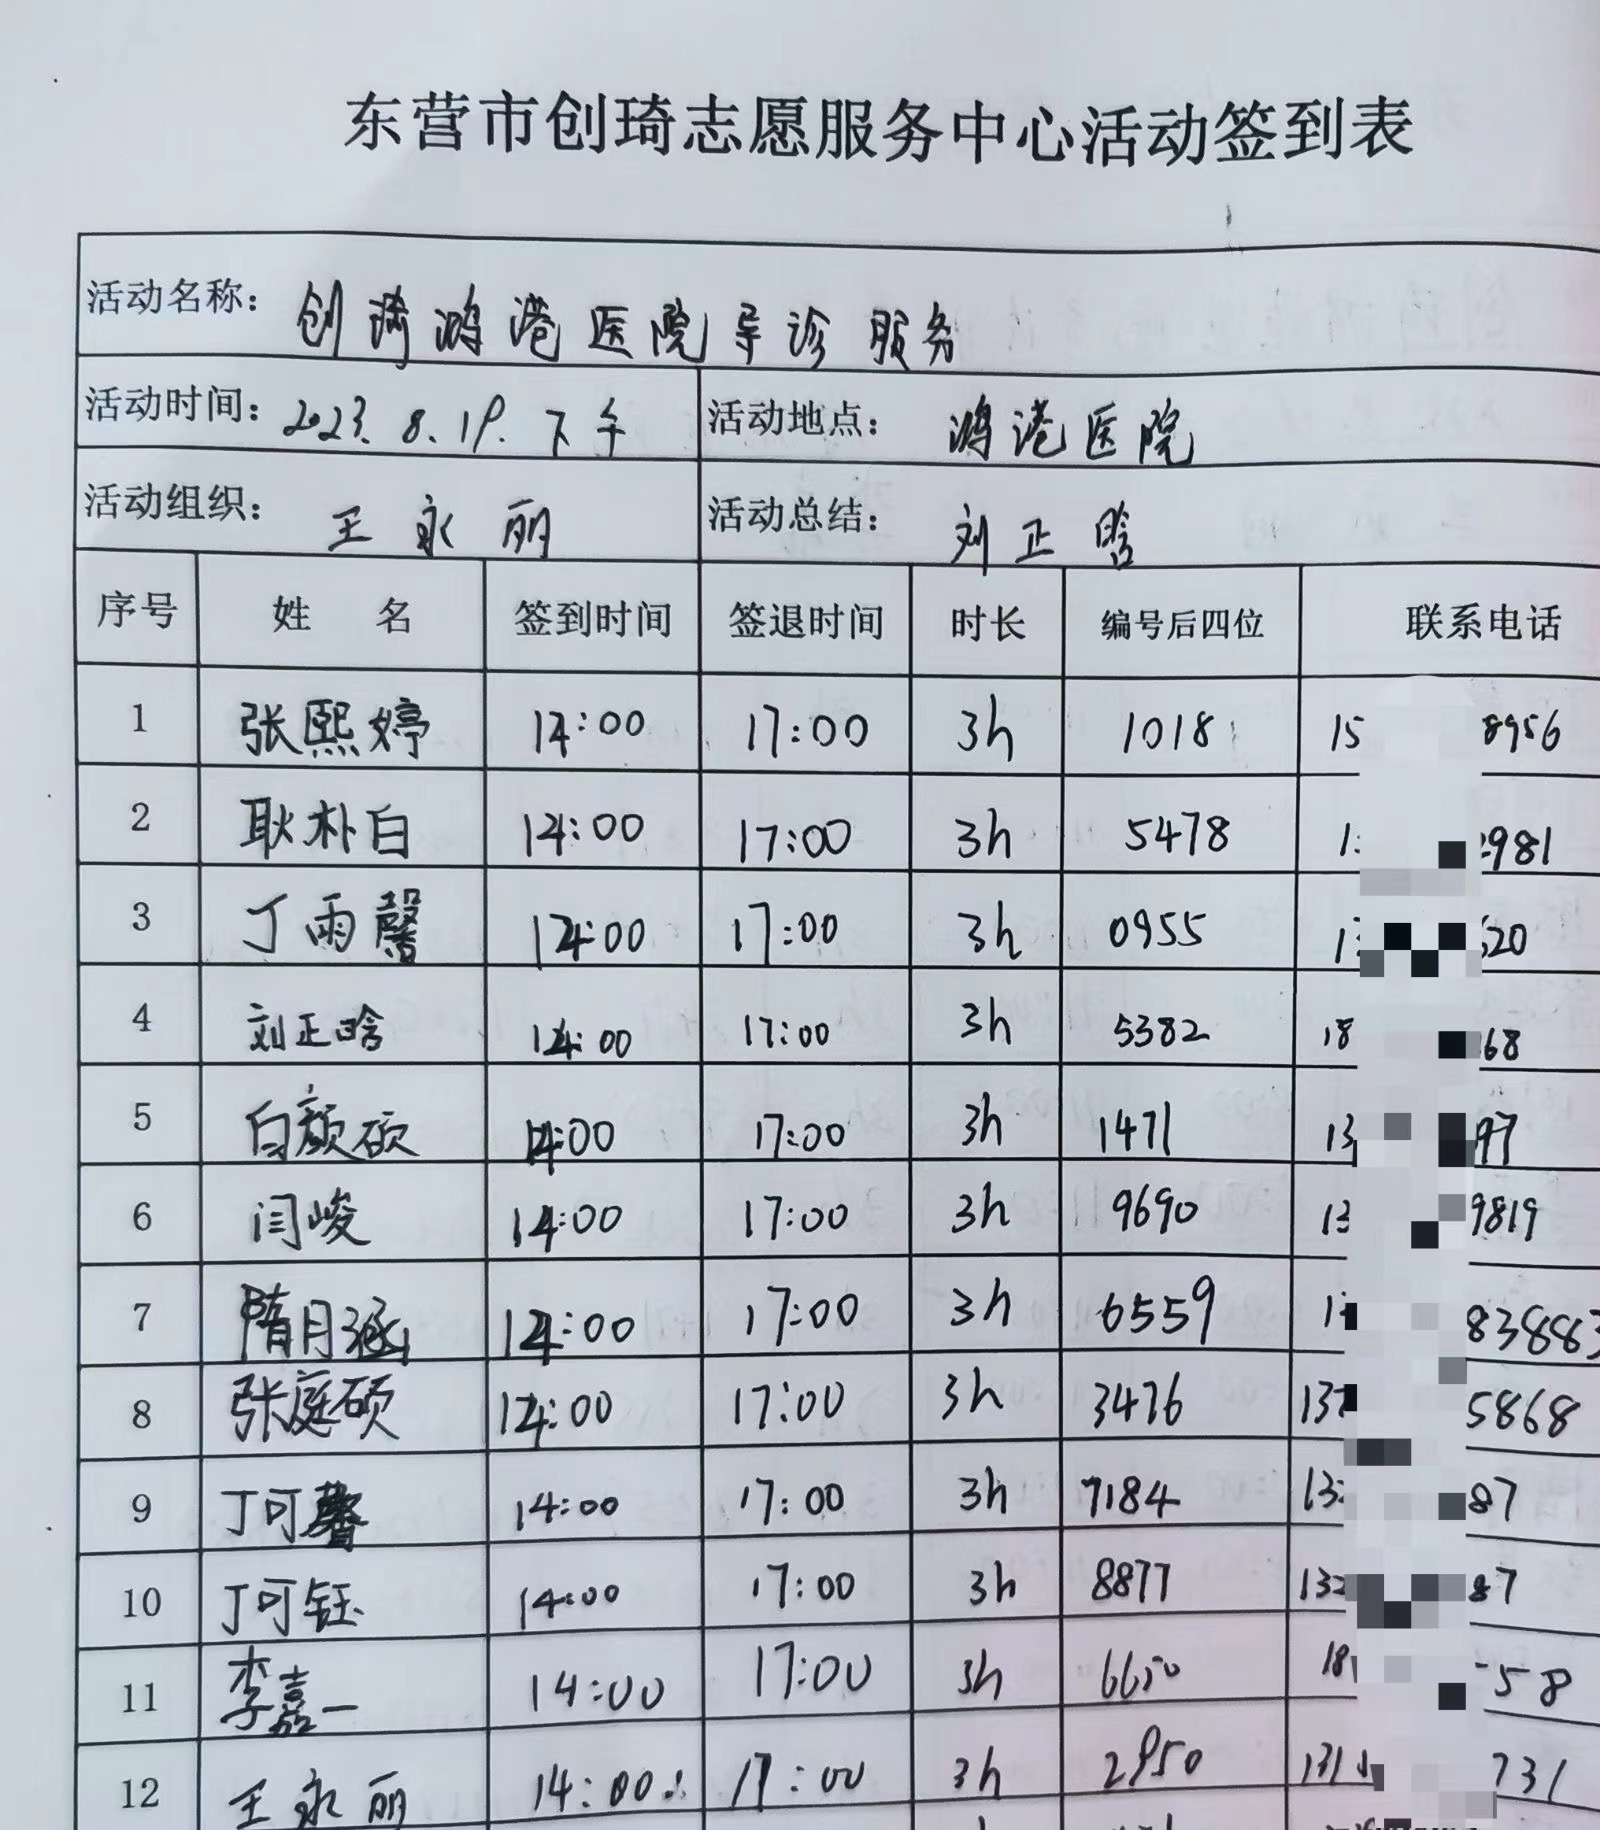 东营市创琦志愿服务中心活动签到表
活动名称： 创琦鸿港医院导诊服务
活动时间： 2023.8.19.下午 活动地点： 鸿港医院
活动组织： 王永丽 活动总结： 刘正晗
序号 姓名 签到时间 签退时间 时长 编号后四位 联系电话
1 张熙婷 14:00 17:00 3h 1018 15 8956
2 耿朴白 14:00 17:00 3h 5478 1 981
3 丁雨馨 14:00 17:00 3h 0955 13 520
4 刘正晗 14:00 17:00 3h 5382 18 68
5 白颜硕 14:00 17:00 3h 1471 13 97
6 闫峻 14:00 17:00 3h 9690 13 9819
7 隋月涵 14:00 17:00 3h 6559 1 83883
8 张庭硕 14:00 17:00 3h 3476 137 5868
9 丁可馨 14:00 17:00 3h 7184 13 87
10 丁可钰 14:00 17:00 3h 8877 132 87
11 李嘉一 14:00 17:00 3h 6650 18 58
12 王永丽 14:00 17:00 3h 2950 131 731